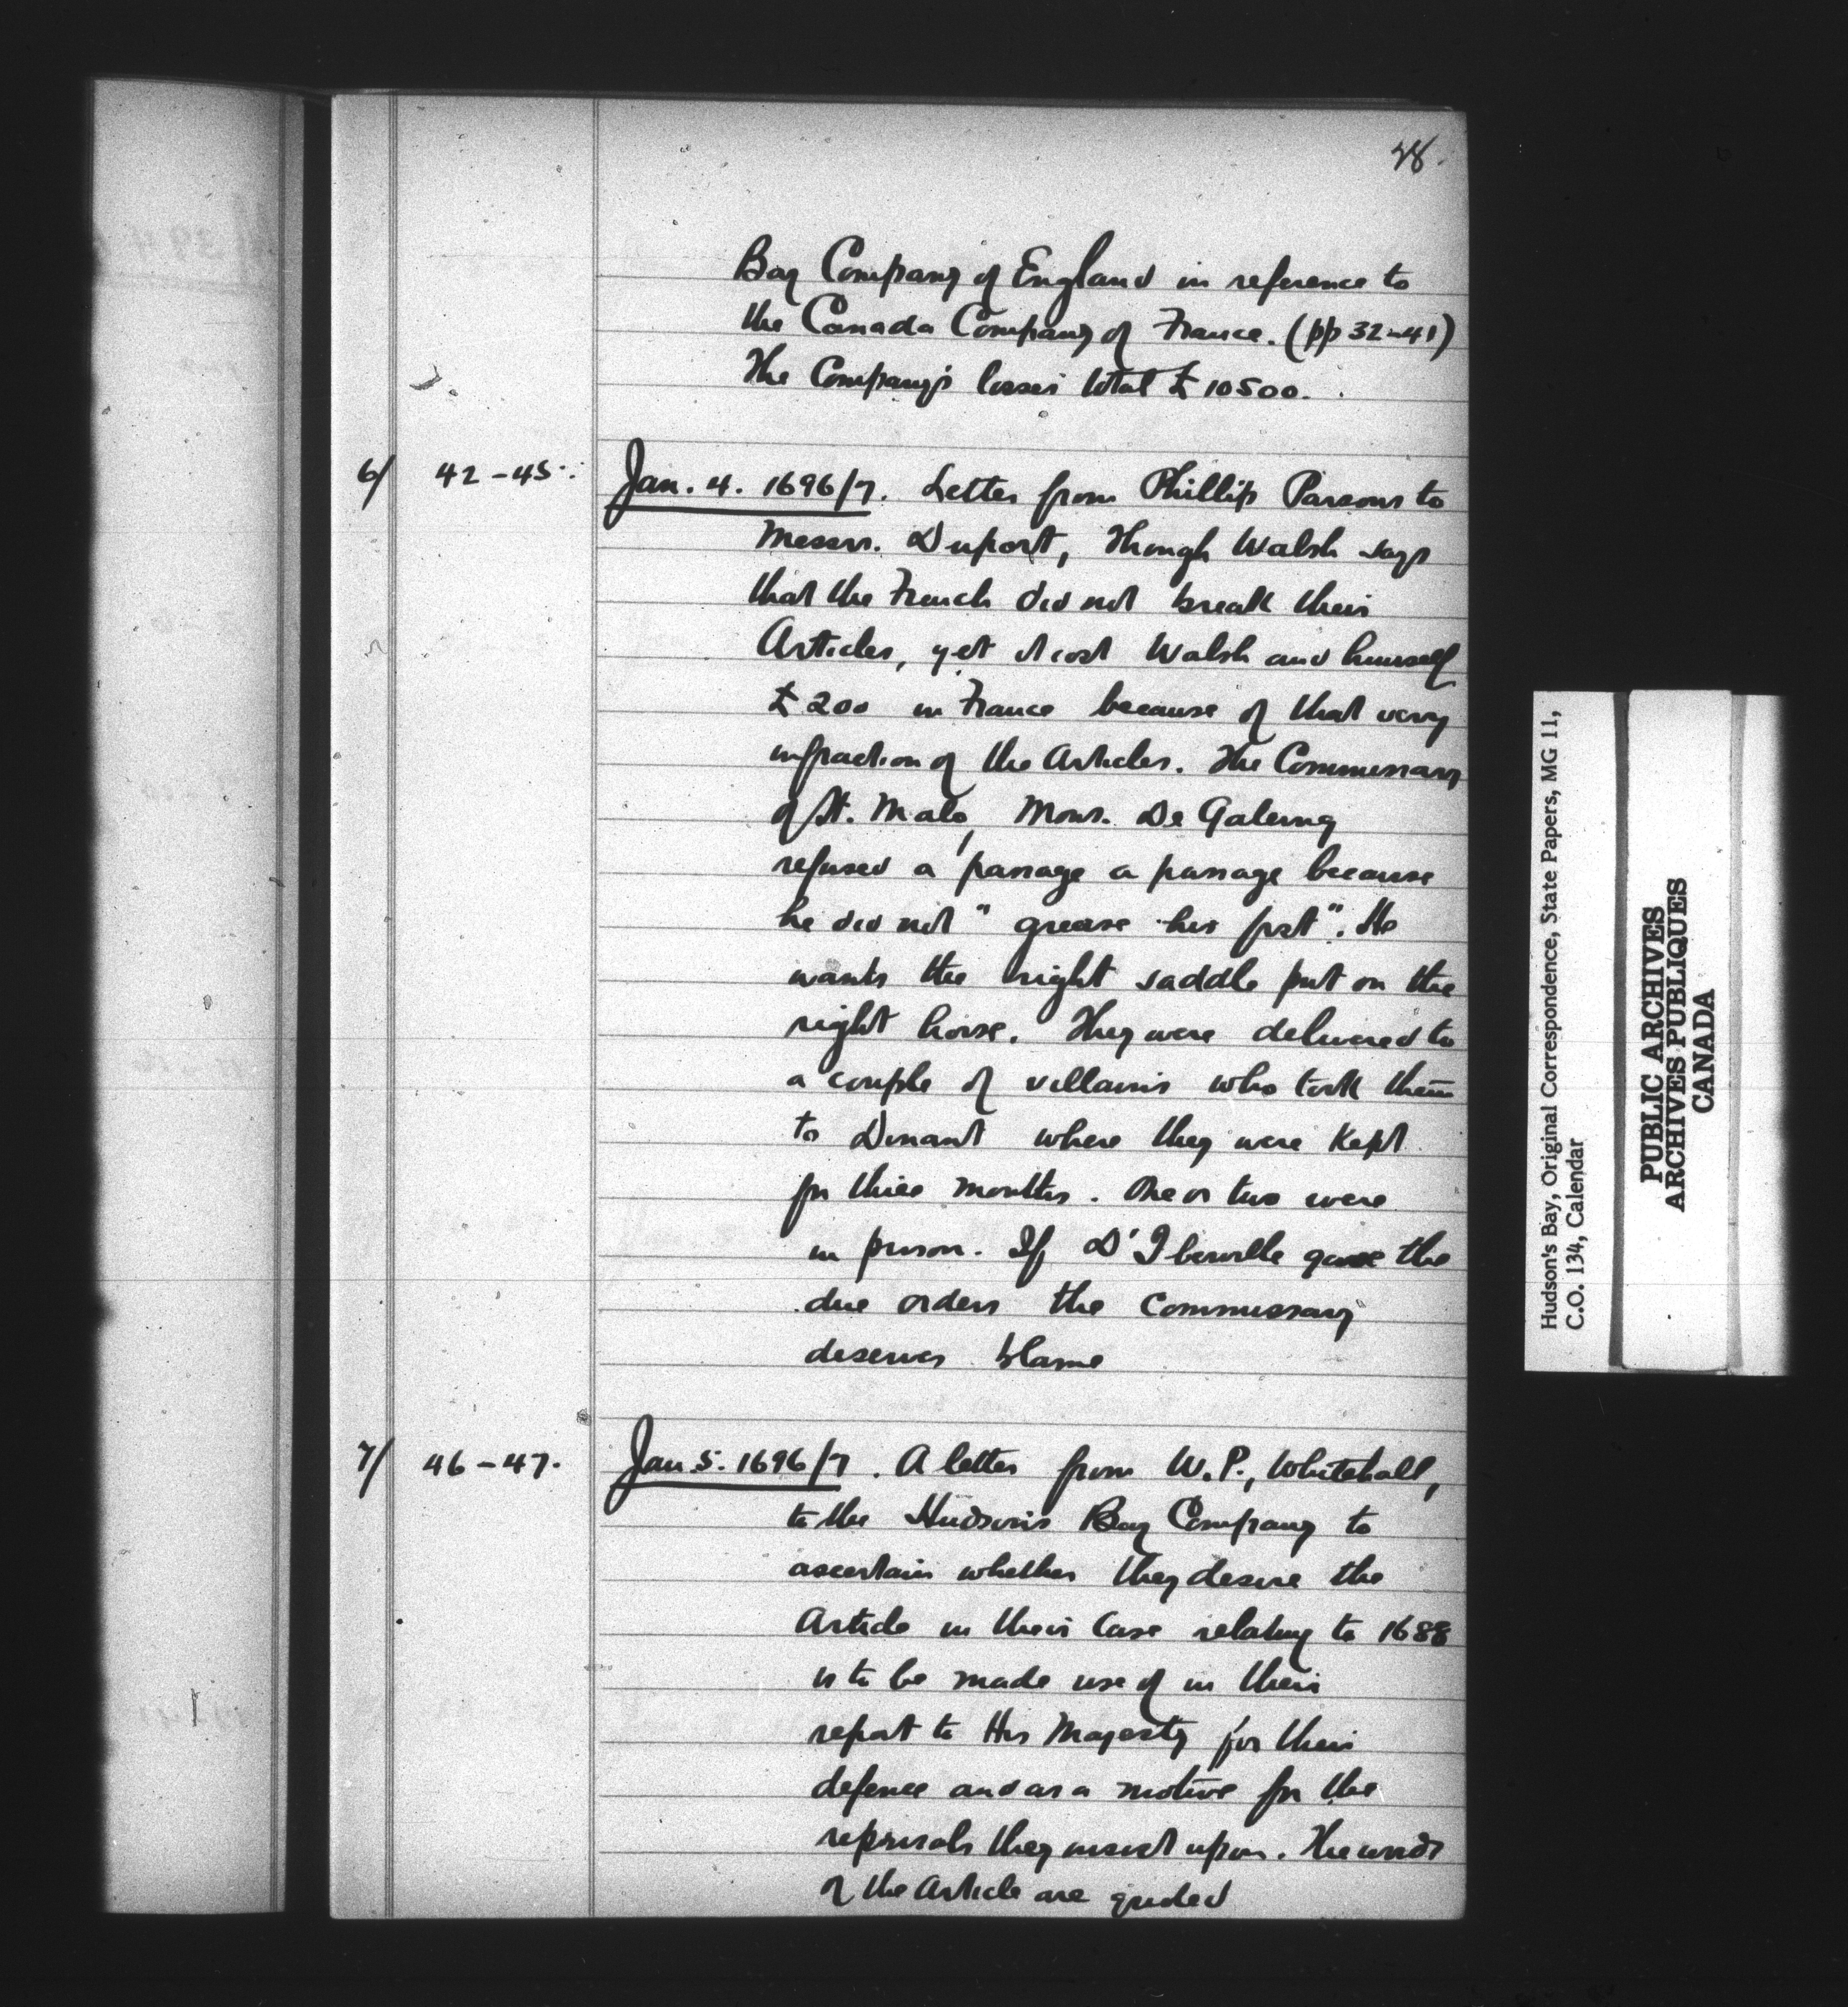 28.
Bay Company of England in reference to
the Canada Company of France. (pp 32-41)
The Company's losses total £10500.
6/ 42-45. Jan. 4. 1696/7. Letter from Phillip Parsons to
Messrs. Duport, Though Walsh says
that the French did not break their
Articles, yet it cost Walsh and himself
£200 in France because of that very
infraction of the Articles. The Commissary
of St. Malo, Mons. De Galerny
refused a passage a passage because
he did not "grease his fist". He
wants the right saddle put on the
right horse. They were delivered to
a couple of villains who took them
to Dinant where they were kept
for three months. One or two were
in prison. If D'Iberville gave the
due orders the Commissary
deserves blame
7/ 46-47. Jan. 5. 1696/7. A letter from W.P., Whitehall,
to the Hudson's Bay Company to
ascertain whether they desire the
Article in their Case relating to 1688
is to be made use of in their
report to His Majesty for their
defence and as a motive for the
reprisals they insist upon. The words
of the Article are quoted
Hudson's Bay, Original Correspondence, State Papers, MG 11,
C.O. 134, Calendar
PUBLIC ARCHIVES
ARCHIVES PUBLIQUES
CANADA